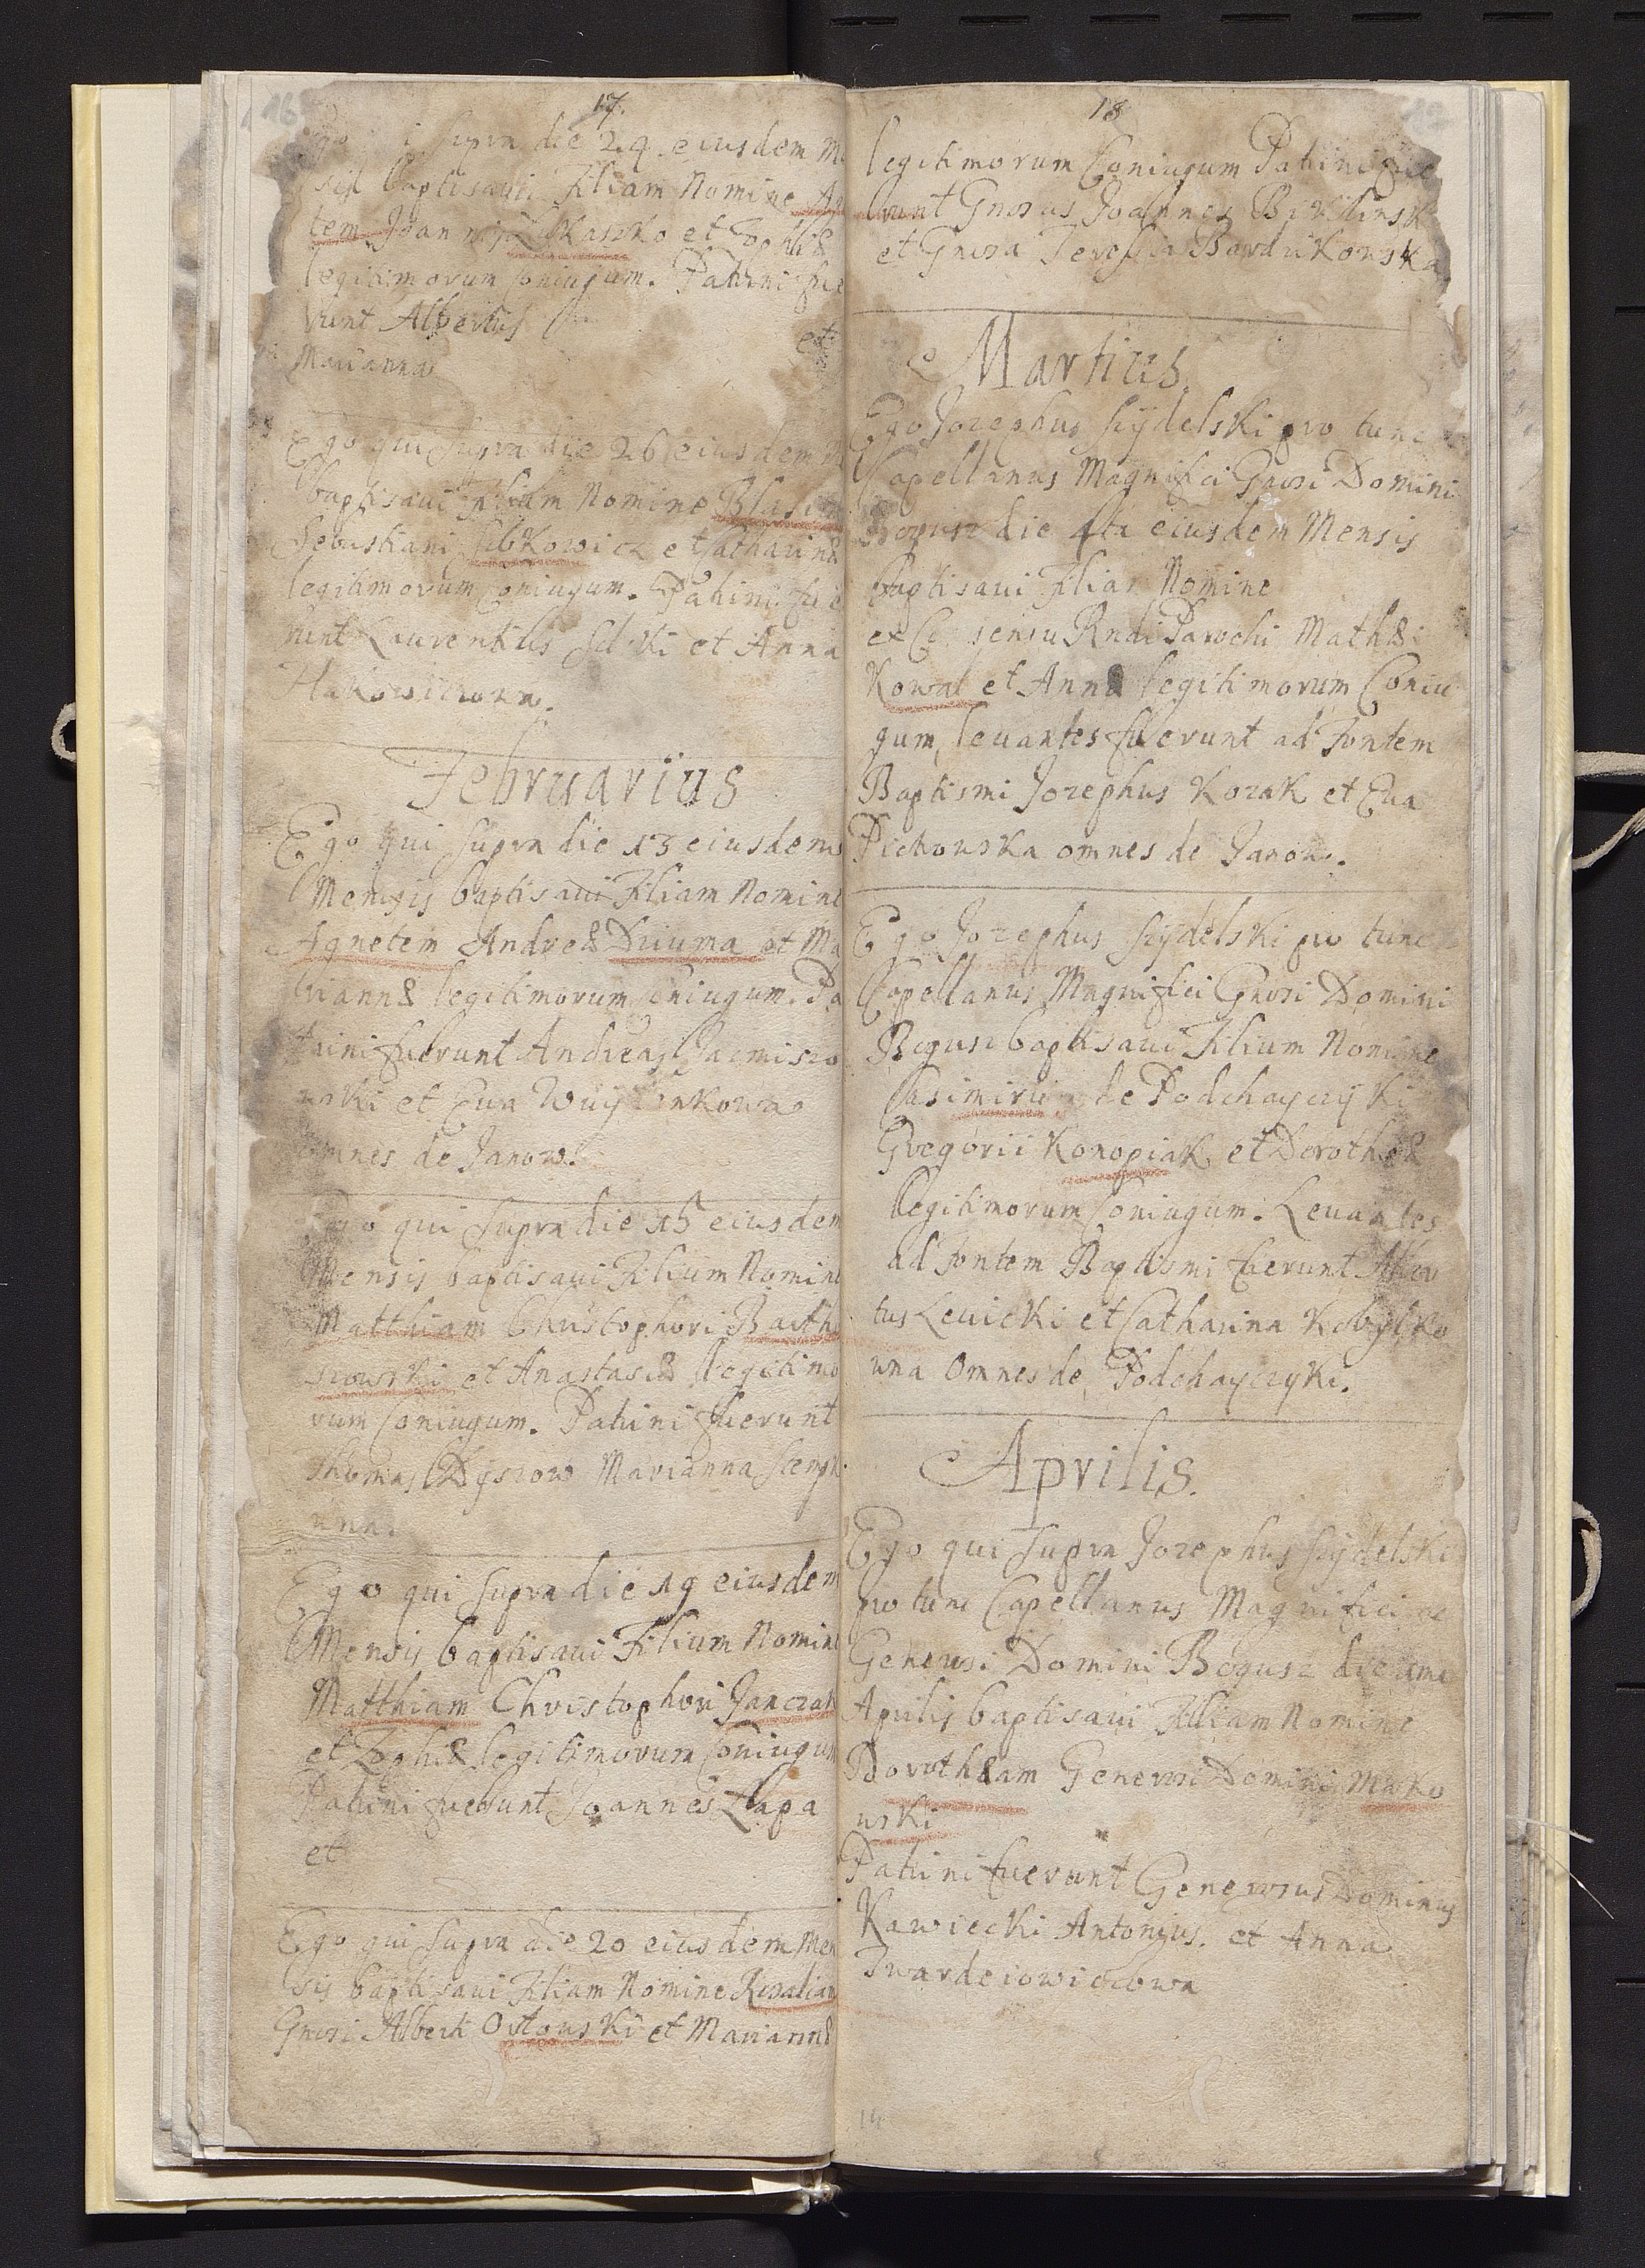 17.
supra die 24. eiusdem M
sis baptisaui Filiam Nomine Ag
tem Joannis Lukaszko et Zophiæ
legitimorum Coniugum. Patrini fue
runt Albertus
et
Marianna
Ego qui supra die 26 eiusdem M
baptisaui Filium Nomine Blasium
Sebastiani et Catharinæ
legitimorum Coniugum. Patrini fue
runt Laurentius et Anna
Februarius
Ego qui supra die 13 eiusdem
Mensis baptisaui Filiam Nomine
Agnetem Andreæ Dziuma et Ma
riannæ legitimorum Coniugum. Pa
trini fuerunt Andreas Jarmiszo
wski et Eua
omnes de Janow.
Ego qui supra die 15 eiusdem
Mensis baptisaui Filium Nomine
Matthiam Christophori Bartho
szowski et Anastasiæ legitimo
rum Coniugum. Patrini fuerunt
Thomas Dyszow Marianna
wna.
Ego qui supra die 19 eiusdem
Mensis baptisaui Filium Nomine
Matthiam Christophori Janczak
et Zophiæ legitimorum Coniugum
Patrini fuerunt Joannes Łapa
et
Ego qui supra die 20 eiusdem Men
sis baptisaui Filiam Nomine Rosaliam
Gnosi Alberti Ortowski et Mariannæ
18
legitimorum Coniugum Patrini fue
runt Gnosus Joannes
et Gnosa Teressia Bardzikowska
Martius.
Ego Jozephus Szydelski pro tunc
Capellanus Magnifici Gnosi Domini
Bogusz die 4ta eiusdem Mensis
baptisaui Filias Nomine
ex Consensu Rndi Parochi Mathæi
Kowal et Annæ legitimorum Coniu
gum, leuantes fuerunt ad Fontem
Baptismi Jozephus Kozak et Eua
Pichowska omnes de Janow.
Ego Jozephus Szydelski pro tunc
Capellanus Magnifici Gnosi Domini
Bogusz baptisaui Filium Nomine
Casimirum de Podchayczyki
Gregorii Konopiak et Dorotheæ
legitimorum Coniugum. Leuantes
ad fontem Baptismi fuerunt Alber
tus Leuicki et Catharina Kobylko
wna Omnes de Podchayczyki.
Aprilis.
Ego qui supra Jozephus Szydelski
pro tunc Capellanus Magnifici ac
Generosi Domini Bogusz die 1ma
Aprilis baptisaui Filiam Nomine
Dorotheam Generosi Domini Mako
wski
Patrini fuerunt Generosus Dominus
Kawiecki Antonius. et Anna
14